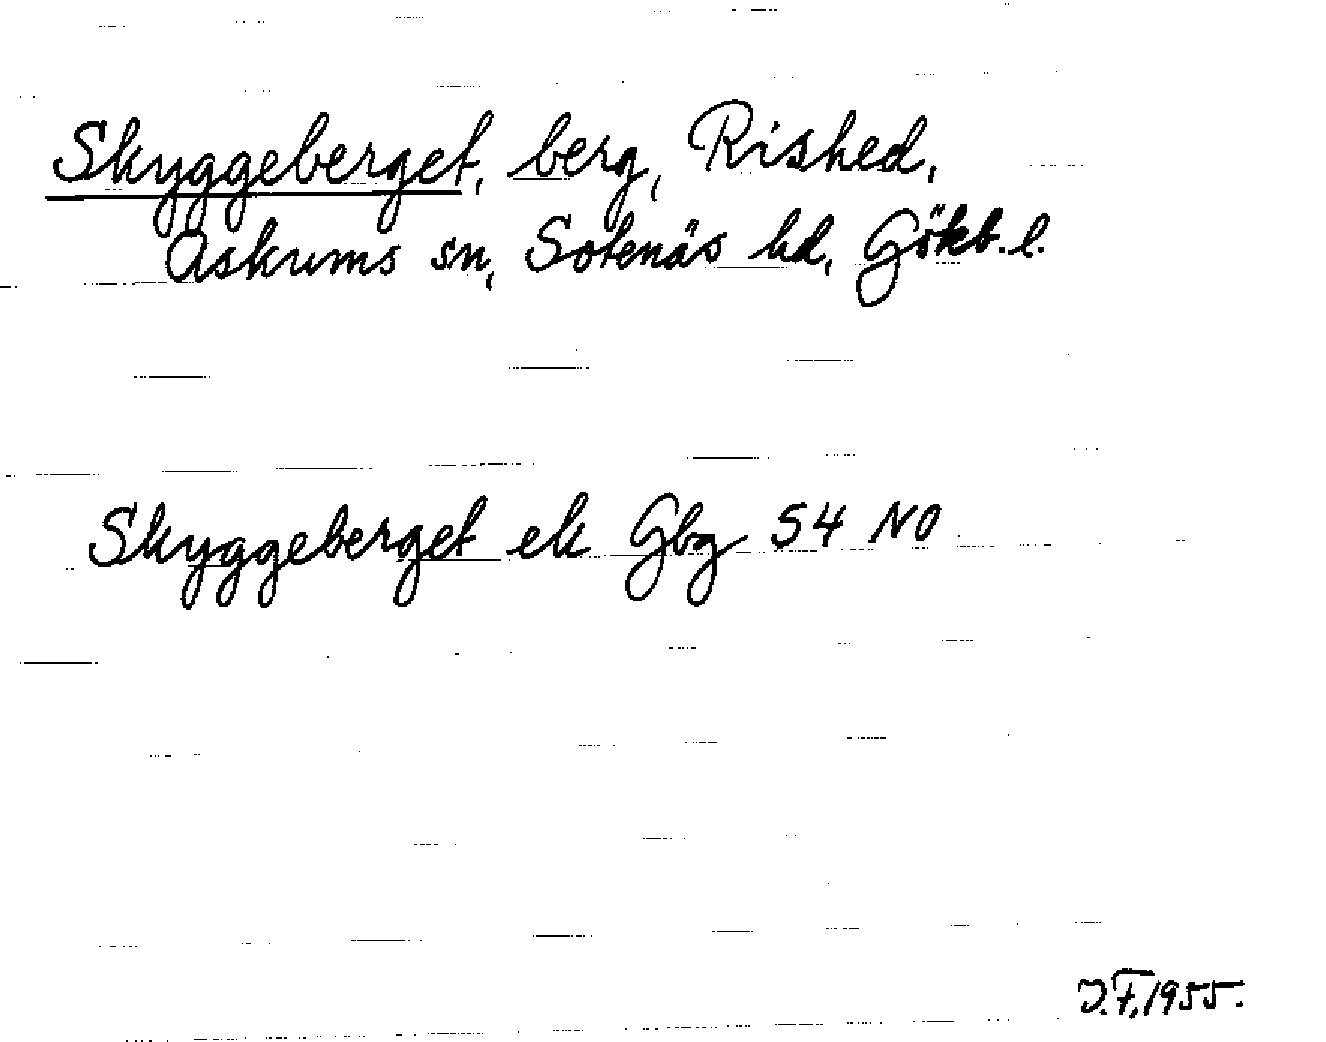 Skyggeberget, berg, Rished,
Askums sn, Sotenäs hd, Götb. l.
Skyggeberget ek Gbg 54 NO
J.F. 1955.